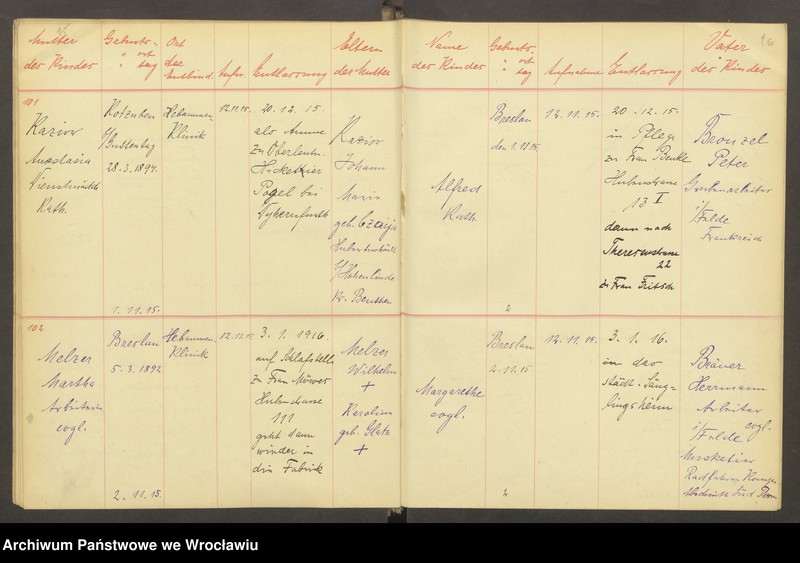 Mutter
der Kinder
Geburts-
" ort
" tag
Ort
der
Entbind.
Aufn.
Entlassung
Eltern
der Mutter
Name
der Kinder
Geburts-
" ort
" tag
Aufnahme
Entlassung
Vater
der Kinder
16
101
Kaziow
Kath.
28.3.1894.
1.11.15.
Hebammen
Klinik
12.11.15.
20.12.15.
als Amme
zu Oberleutn.
bei
Kaziow
Johann
Maria
geb.
Hohenlinde
Kr. Beuthen
Alfred
Kath.
Breslau
den 1.11.15
2
12.11.15.
20.12.15.
in Pflege
zu Frau
13 I
dann nach
22
zu Frau Fritsch
Peter
Grubenarbeiter
i/Felde
Frankreich
102
Melzer
Martha
Arbeiterin
evgl.
Breslau
5.3.1892
2.11.15.
Hebammen
Klinik
12.12.15
3.1.1916.
auf Schlafstelle
zu Frau
111
geht dann
wieder in
die Fabrik
Melzer
Wilhelm
+
Karoline
geb. Glatz
+
Margarethe
evgl.
Breslau
2.11.15.
2
12.11.15.
3.1.16.
in das
städt. Säug-
lingsheim
Bräuer
Herrmann
Arbeiter
evgl.
i/Felde
Musketier
Radfahrer Komp.
Archiwum Państwowe we Wrocławiu